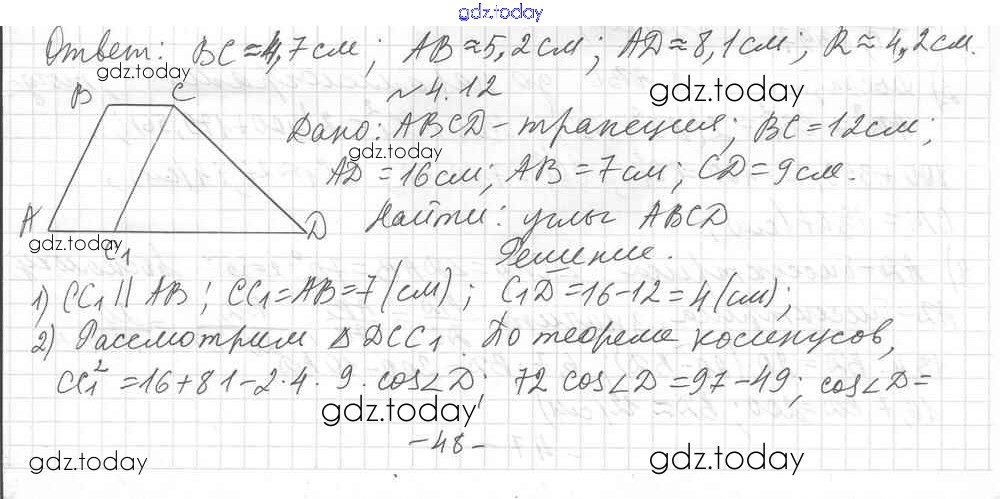 gdz.today
Ответ: BC≈4,7см; AB≈5,2см; AD≈8,1см; R≈4,2см.
gdz.today
gdz.today
~4.12
B C
Дано: ABCD-трапеция; BC=12см;
gdz.today
AD=16см; AB=7см; CD=9см.
A D
Найти: углы ABCD
gdz.today
C1
Решение.
1) CC₁ || AB; CC₁=AB=7(см); C₁D=16-12=4(см);
2) Рассмотрим ΔDCC₁. По теореме косинусов,
CC₁²=16+81-2·4·9·cos∠D; 72 cos∠D=97-49; cos∠D=
gdz.today
-48-
gdz.today
gdz.today